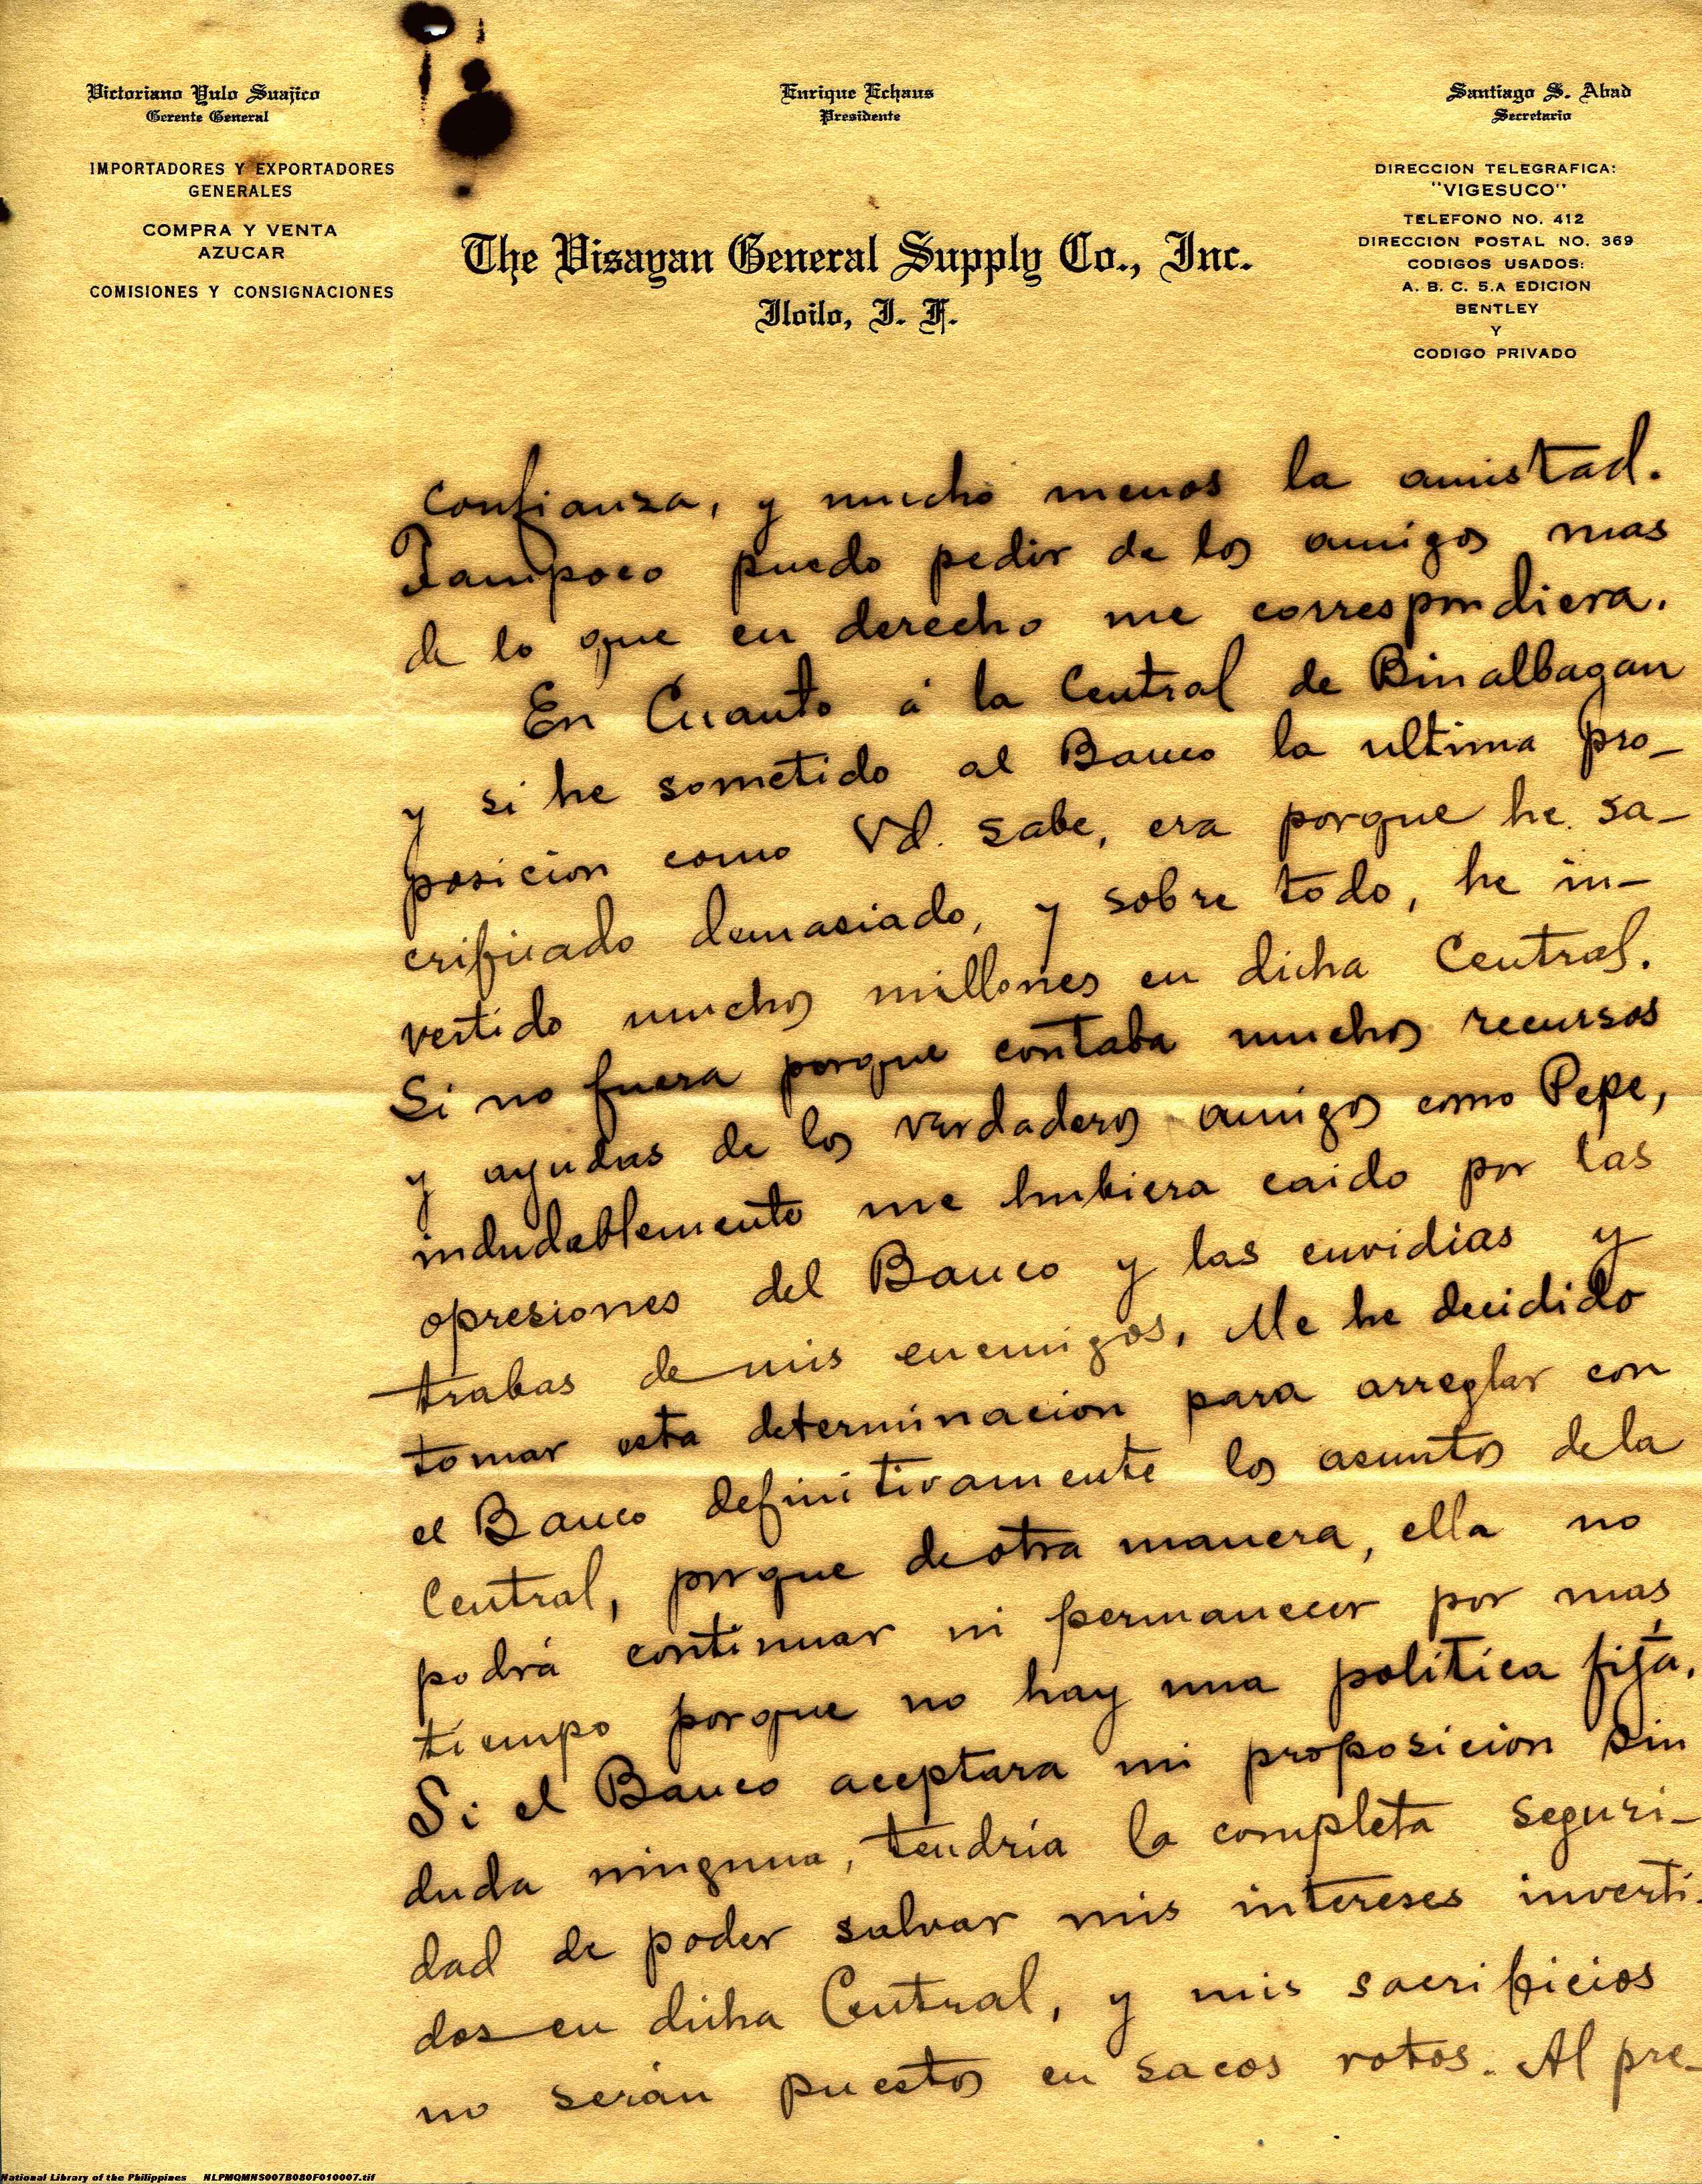 Victoriano Yulo Suajico
Gerente General
IMPORTADORES Y EXPORTADORES
GENERALES
COMPRA Y VENTA
AZUCAR
COMISIONES Y CONSIGNACIONES
Enrique Echaus
Presidente
Santiago S. Abad
Secretario
DIRECCION TELEGRAFICA:
"VIGESUCO"
TELEFONO NO. 412
DIRECCION POSTAL NO. 369
CODIGOS USADOS:
A. B. C. 5.A EDICION
BENTLEY
Y
CODIGO PRIVADO
The Visayan General Supply Co., Inc.
Iloilo, I. F.
confianza, y mucho menos la amistad.
Tampoco puedo pedir de los amigos mas
de lo que en derecho me correspondiera.
En Cuanto á la Central de Binalbagan
y si he sometido al Banco la ultima pro-
posicion como Vd. sabe, era porque he sa-
crificado demasiado, y sobre todo, he in-
vertido muchos millones en dicha Central.
Si no fuera porque contaba muchos recursos
y ayudas de los verdaderos amigos como Pepe,
indudablemente me hubiera caido por las
opresiones del Banco y las envidias y
trabas de mis enemigos. Me he decidido
tomar esta determinacion para arreglar con
el Banco definitivamente los asuntos de la
Central, porque de otra manera, ella no
podrá continuar ni permanecer por mas
tiempo porque no hay una politica fija.
Si el Banco aceptara mi proposicion sin
duda ninguna, tendría la completa seguri-
dad de poder salvar mis intereses inverti-
dos en dicha Central, y mis sacrificios
no serán puestos en sacos rotos. Al pre-
National Library of the Philippines NLPMQMNS007B080F010007.tif